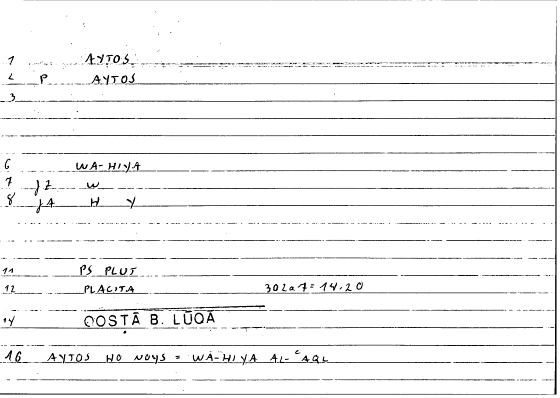 1 AYTOS
2 P AYTOS
3
6 WA-HIYA
7 J2 W
8 J4 H Y
11 PS PLUT
12 PLACITA 302a7=14.20
14 QOSṬĀ B. LŪQĀ
16 AYTOS HO NOYS = WA-HIYA AL-ʿAQL